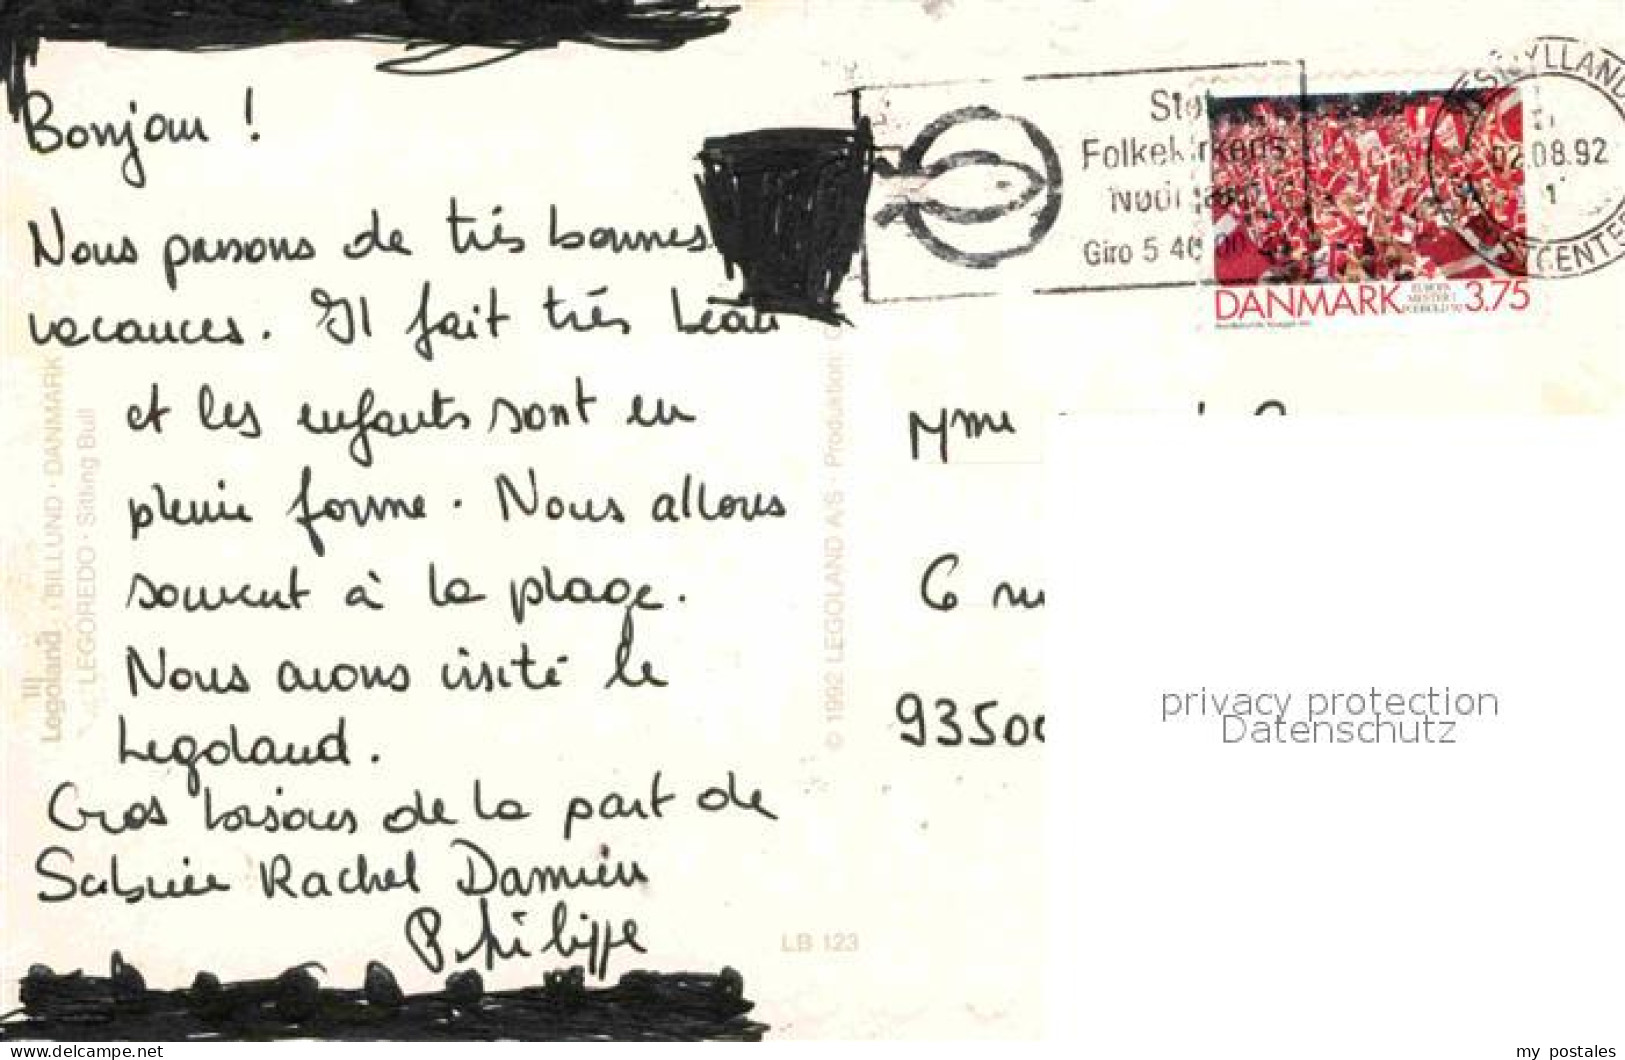 Bonjour !
Nous passons de très bonnes
vacances. Il fait très beau
et les enfants sont en
pleine forme. Nous allons
souvent à la plage.
Nous avons visité le
Legoland.
Gros baisers de la part de
Sabrine Rachel Damien
Philippe
Legoland · BILLUND · DANMARK
LEGOREDO · Sitting Bull
© 1992 LEGOLAND A/S · Production:
LB 123
Folkekirkens
Giro 5 40
02.08.92
1
DANMARK 3.75
EUROPA
MESTER I
FODBOLD 92
Mme
6 ru
93500
privacy protection
Datenschutz
www.delcampe.net
my_postales